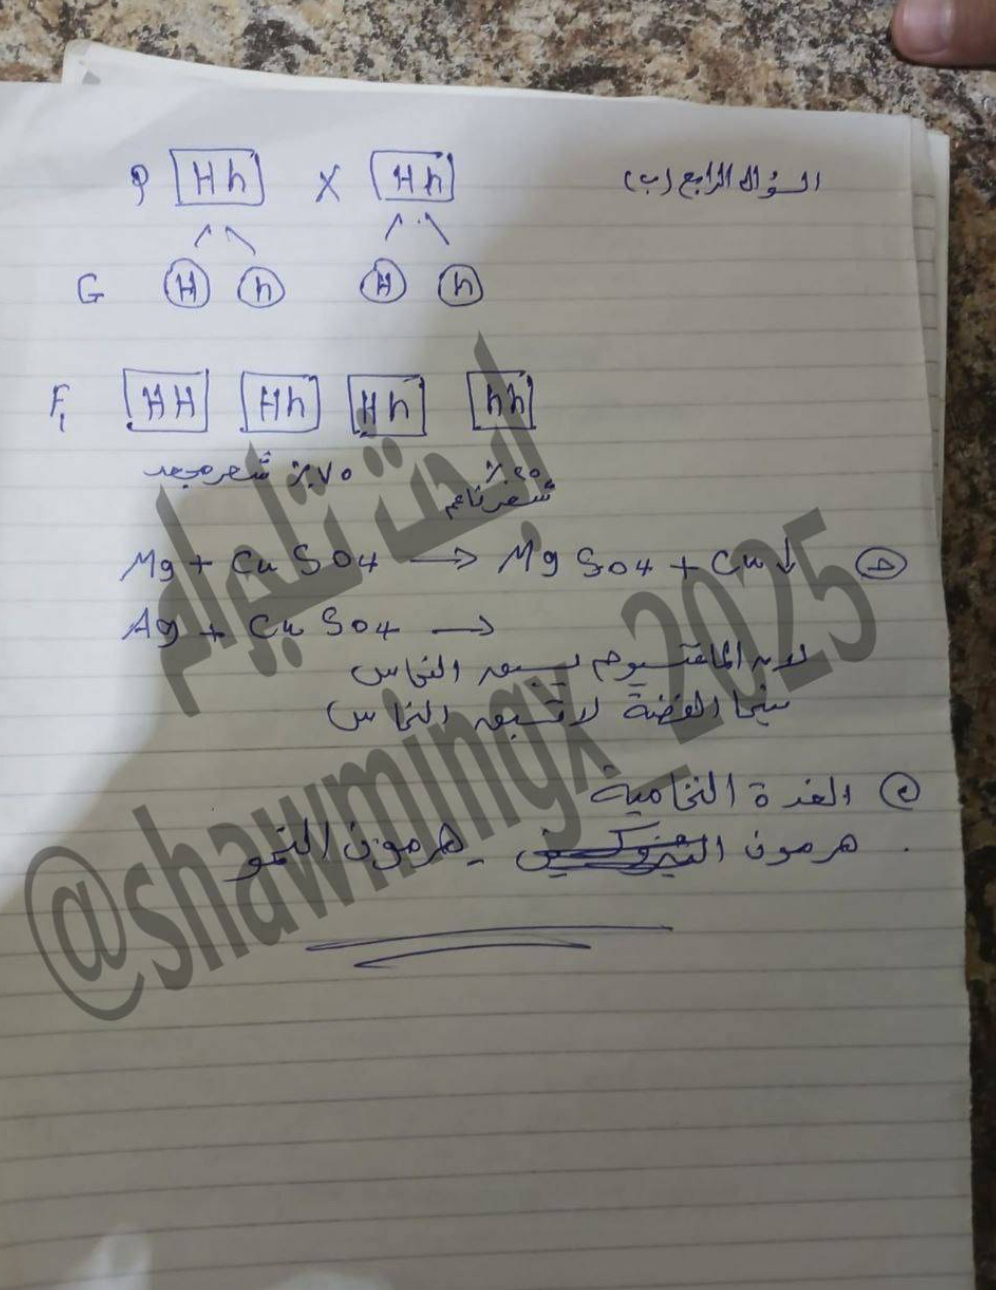 السؤال الرابع (ب)
P Hh X Hh
G H h H h
F1 HH Hh Hh hh
٧٠٪ شعر مجعد
٢٥٪
شعر ناعم
Mg + CuSO4 → MgSO4 + Cu↓
Ag + CuSO4 →
لان الماغنسيوم يسبق النحاس
بينما الفضة لا تسبق النحاس
الغدة النخامية
هرمون - هرمون النمو
ابحث تليجرام
@shawmingx_2025